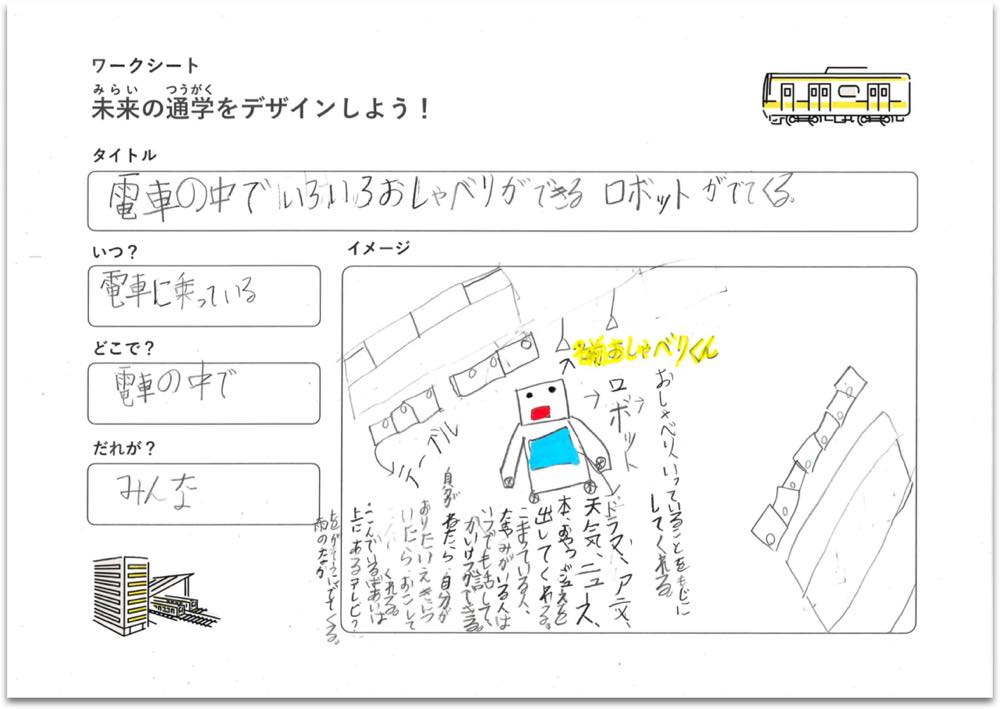 ワークシート
みらい つうがく
未来の通学をデザインしよう！
タイトル
電車の中でいろいろおしゃべりができる ロボットがでてくる。
いつ？
電車に乗っている
どこで？
電車の中で
だれが？
みんな
イメージ
名前おしゃべりくん
おしゃべり、いっていることをもじに
してくれる
ロボット
テーブル
ドラマ、アニメ、
天気、ニュース、
本、おやつ、ジュースを
出してくれる。
こまっている人、
なやみがいる人は
いつでも話して、
かいけつができる。
自分がねたら、自分が
おりたいえきにつ
いたら、おこして
くれる。
こんでいるばあいは
上にあるテレビ？